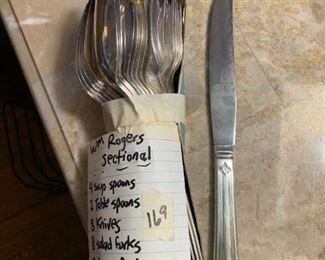 Wm Rogers
sectional
4 soup spoons
2 Table spoons
8 Knives
8 salad forks
169